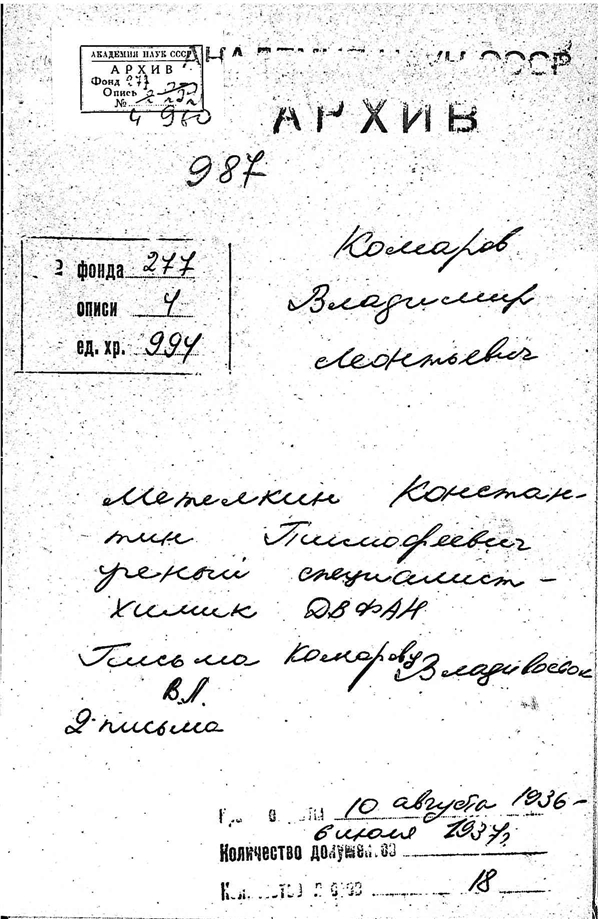 АКАДЕМИЯ НАУК СССР
АРХИВ
Фонд 277
Опись
№
4 960
АКАДЕМИЯ НАУК СССР
АРХИВ
987
№ фонда 277
описи 4
ед. хр. 994
Комаров
Владимир
Леонтьевич
Метелкин Констан-
тин Тимофеевич
ученый специалист -
химик ДВФАН
Письма Комарову Владивосток
В.Л.
2 письма
10 августа 1936 -
6 июля 1937г.
Количество документов
18